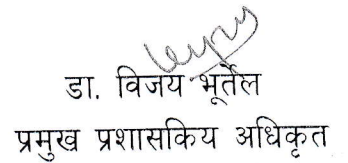 डा. विजय भूर्तेल
प्रमुख प्रशासकिय अधिकृत